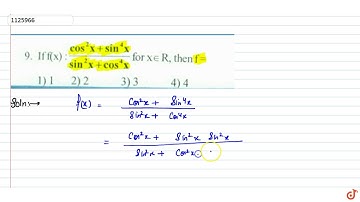 1125966
9. If f(x) : cos²x+sin⁴x / sin²x+cos⁴x for x∈R, then f =
1) 1 2) 2 3) 3 4) 4
Soln:→ f(x) = Cos²x + Sin⁴x / Sin²x + Cos⁴x
= Cos²x + Sin²x Sin²x / Sin²x + Cos²x